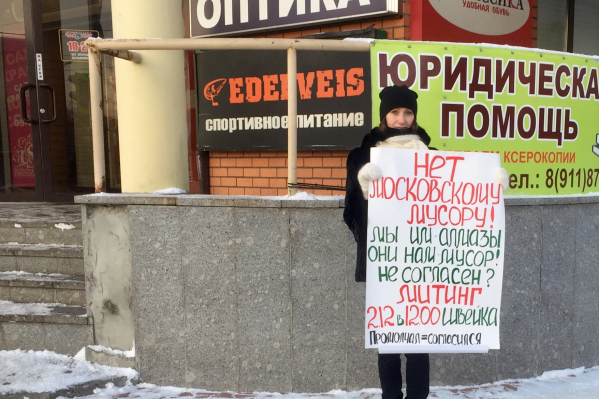 ОПТИКА
ССИКА
УДОБНАЯ ОБУВЬ
EDELWEIS
спортивное питание
ЮРИДИЧЕСКА
ПОМОЩЬ
КСЕРОКОПИИ
ел.: 8(911)8
НЕТ
МОСКОВСКОМУ
МУСОРУ!
МЫ ИМ АЛМАЗЫ
ОНИ НАМ МУСОР!
НЕ СОГЛАСЕН?
МИТИНГ
2.12 в 12.00 ШВЕЙКА
Промолчал=согласился